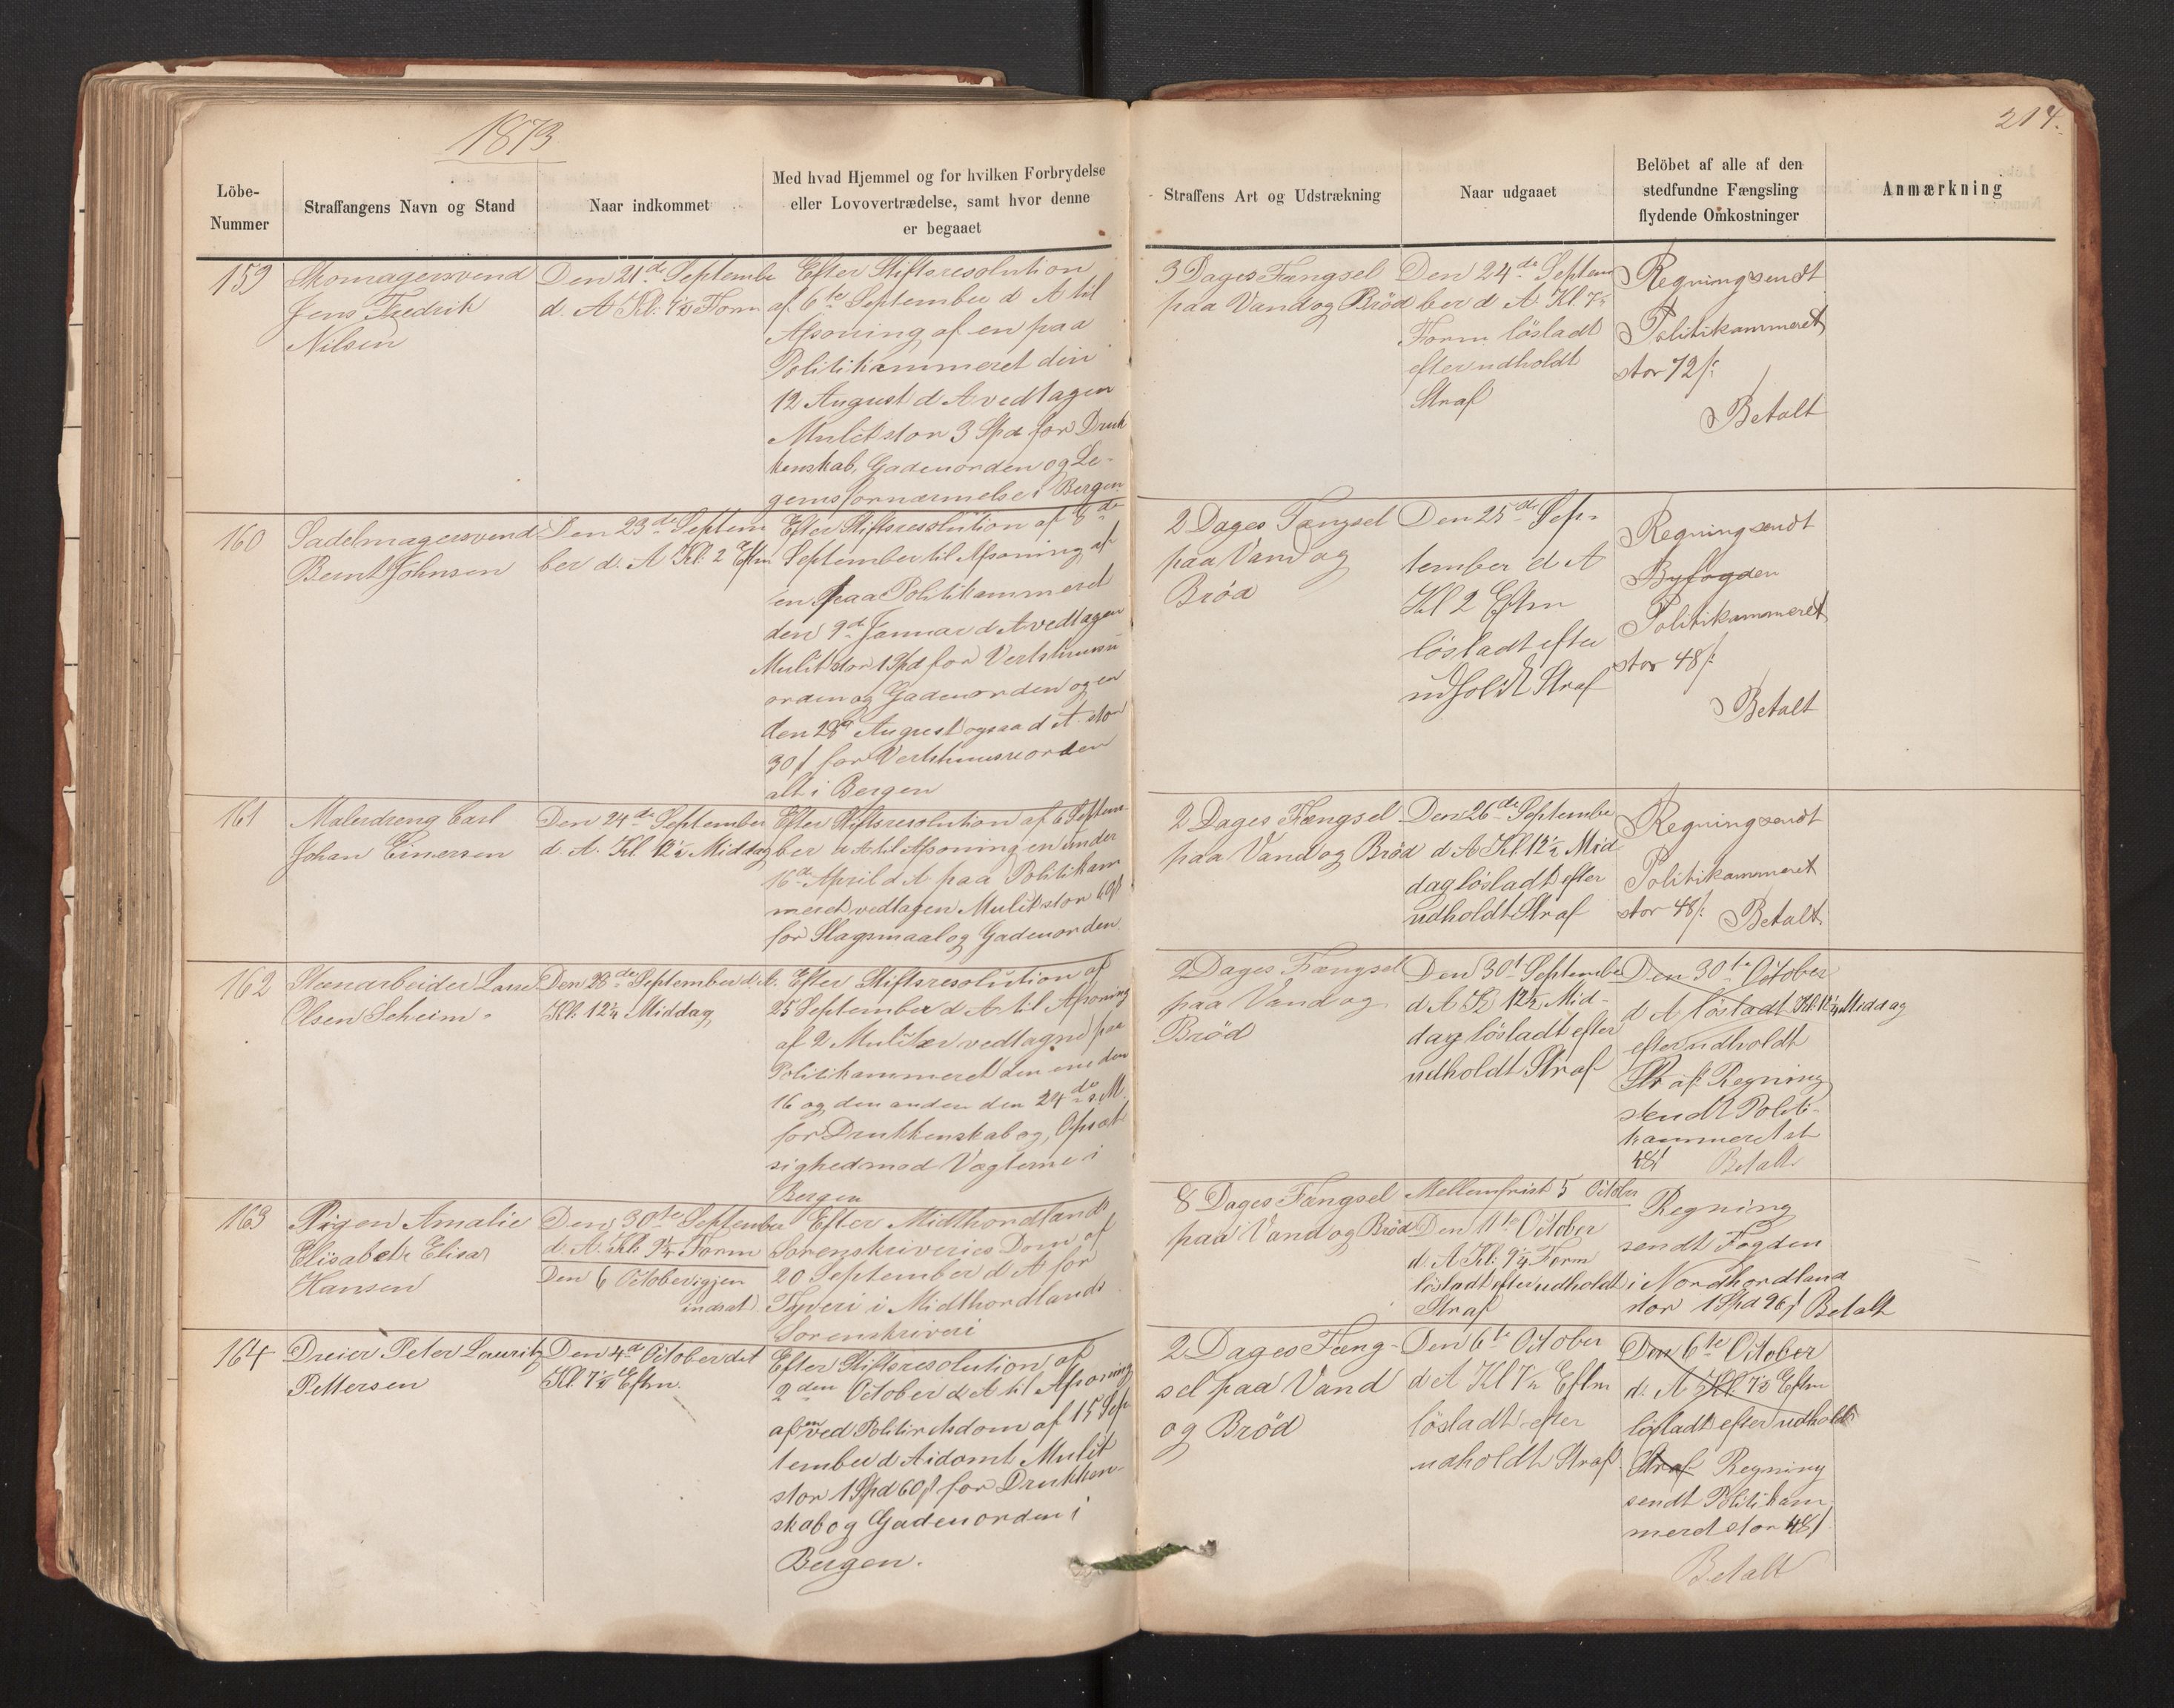 1873
214.
Löbe-
Nummer
Straffangens Navn og Stand
Naar indkommet
Med hvad Hjemmel og for hvilken Forbrydelse
eller Lovovertrædelse, samt hvor denne
er begaaet
Straffens Art og Udstrækning
Naar udgaaet
Belöbet af alle af den
stedfundne Fængsling
flydende Omkostninger
Anmærkning
159
Skomagersvend
Jens Fredrik
Nilsen
Den 21de Septembe
d. A Kl: 7½ Form
Efter Stiftsresolution
af 6te September d A til
Afsoning af en paa
Politikammeret den
12 August d A vedtagen
Mulct stor 3 Spd for Druk
kenskab, Gadeuorden og Le-
gemsfornærmelse i Bergen
3 Dages Fængsel
paa Vand og Bröd
Den 24de Septem
ber d A. Kl. 7½
Form lösladt
efter udholdt
Straf
Regning sendt
Politikammeret
stor 72 f:
Betalt
160
Sadelmagersvend
Bernt Johnsen
Den 23de Septem
ber d. A Kl: 2 Eftm
Efter Stiftsresolution af 6te
September til Afsoning af
en paa Politikammeret
den 9de Januar d A vedtagen
Mulct stor 1 Spd for Vertshusu
orden og Gadeuorden og en
den 28de August ogsaa d A stor
30 f for Vertshuusuorden
alt i Bergen
2 Dages Fængsel
paa Vand og
Bröd
Den 25de Sep-
tember d A
Kl 2 Eftm
lösladt efter
udholdt Straf
Regning sendt
Byfogden
Politikammeret
stor 48 f:
Betalt
161
Malerdreng Carl
Johan Einersen
Den 24de September
d A. Kl 12½ Middag
Efter Stiftsresolution af 6 Septem
ber d A til Afsoning en under
16de April d A paa Politikam
meret vedtagen Mulct stor 60 f
for Slagsmaal og Gadeuorden
2 Dages Fængsel
paa Vand og Bröd
Den 26de Septembe
d A Kl. 12½ Mid
dag lösladt efter
udholdt Straf
Regning sendt
Politikammeret
stor 48 f: Betalt
162
Steenarbeider Lars
Olsen Seheim
Den 28de September d. A.
Kl: 12¼ Middag
Efter Stiftsresolution af
25 September d A til Afsoning
af 2 Mulcter vedtagne paa
Politikammeret den ene den
16 og den anden den 24de s. M.
for Drukkenskab og Opsæt
sighed mod Vægterne i
Bergen
2 Dages Fængsel
paa Vand og
Bröd
Den 30t Septembe
d A Kl 12¼ Mid-
dag lösladt efter
udholdt Straf
Den 30te October
d A löstadt Kl: 12¼ Middag
efter udholdt
Straf Regning
sendt Politi-
kammeret st
48 f Betalt
163
Pigen Amalie
Elisabeth Elisa
Hansen
Den 30te Septembe
d. A. Kl: 9¼ Form
Den 6 October igjen
indsat
Efter Midthordlands
Sorenskriveries Dom af
20 September d A for
Tyveri i Midthordlands
Sorenskriveri
8 Dages Fængsel
paa Vand og Bröd
Mellemfrist 5 October
Den 11te October
d. A. Kl: 9¼ Form
lösladt efter udholdt
Straf
Regning
sendt Fogden
i Nordhordland
stor 1 Spd 96 f Betalt
164
Dreier Peter Lauritz
Pettersen
Den 4de October d A
Kl. 7½ Eftm.
Efter Stiftsresolution af
2den October d A til Afsoning
af en ved Politiretsdom af 15 Sep
tember d A idømt Mulct
stor 1 Spd 60 f for Drukken-
skab og Gadeuorden i
Bergen.
2 Dages Fæng-
sel paa Vand
og Bröd
Den 6te October
d A Kl 7½ Eftm
lösladt efter
udholdt Straf
Den 6te October
d. A Kl. 7½ Eftm
lösladt efter udholdt
Straf Regning
sendt Politikam
meret stor 48 f
Betalt